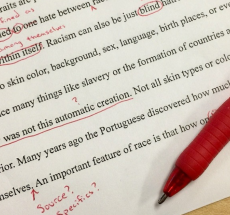 to one hate between
among themselves
within itself. Racism can also be just blind
to skin color, background, sex, language, birth places, or ev
ce many things like slavery or the formation of countries a
?
was not this automatic creation. Not all skin types or color
rior. Many years ago the Portuguese discovered how much
mselves. An important feature of race is that how
Source?
Specifics?